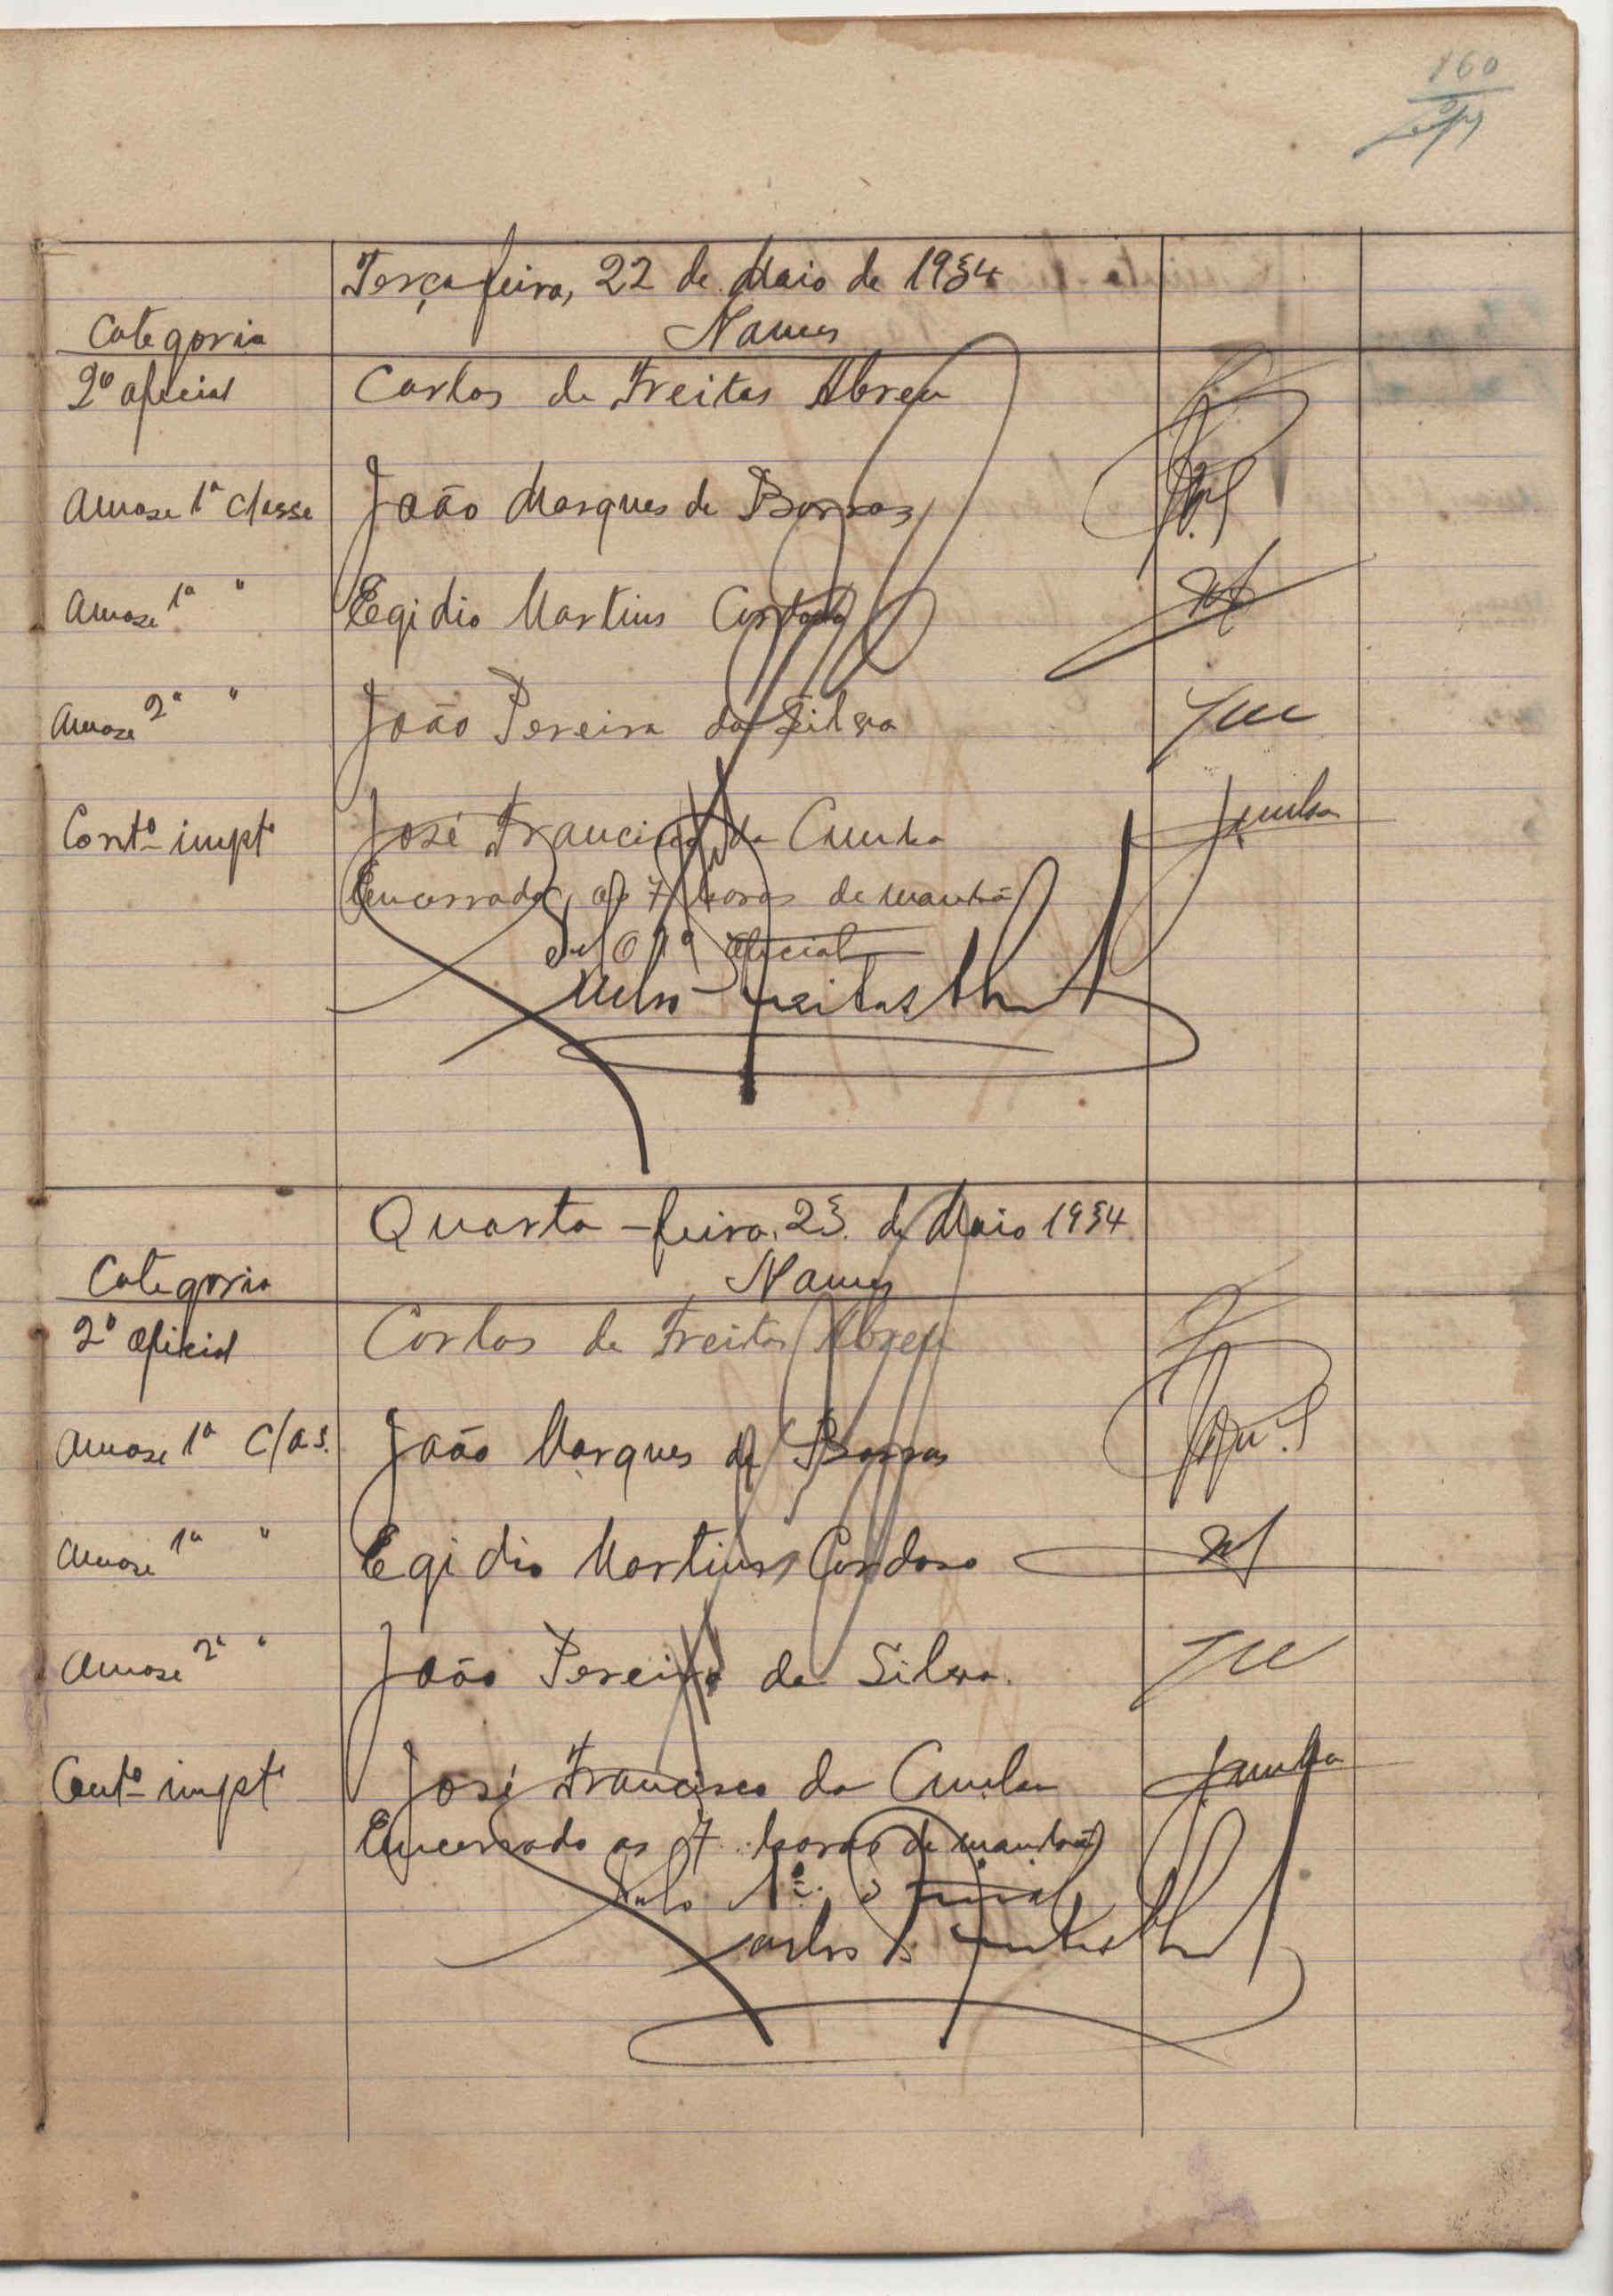 160
Terça feira, 22 de Maio de 1934
Categoria Nomes
2º oficial Carlos de Freitas Abreu
Amose 1ª classe João Marques de Barros
Amose 1ª " Egidio Martins Cardoso
Amose 2ª " João Pereira da Silva
Contº impº José Francisco da Cunha Jcunha
Encerrado, as 7 horas da manhã
O 1º oficial
Freitas Abreu
Quarta-feira, 23 de Maio 1934
Categoria Nomes
2º oficial Carlos de Freitas Abreu
Amose 1ª clas. João Marques de Barros
Amose 1ª " Egidio Martins Cardoso
Amose 2ª " João Pereira da Silva.
Contº impº José Francisco da Cunha Jcunha
Encerrado as 7 horas da manhã
Pelo 1º oficial
Carlos de Freitas Abreu